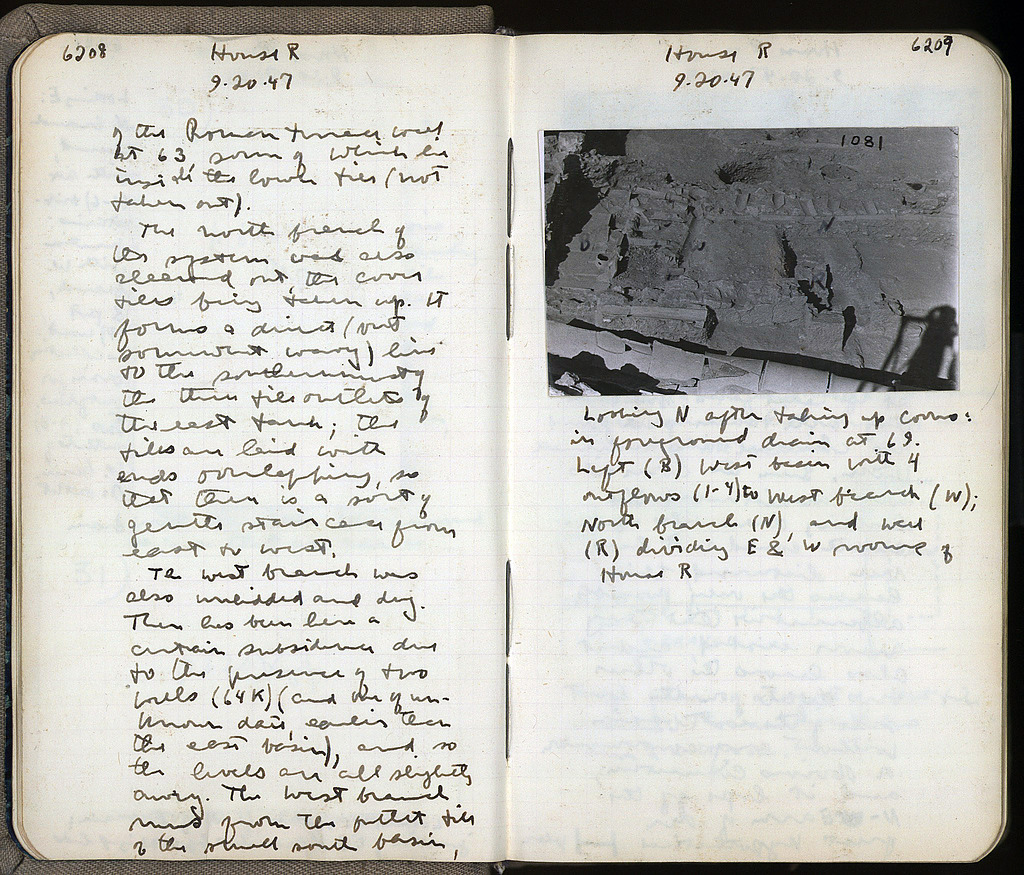 6208
House R
9.20.47
of the Roman terrace wall
at 63, some of which lie
inside the lower tiles (not
taken out).
The north branch of
the system was also
cleaned out, the cover
tiles being taken up. It
forms a direct (but
somewhat wavy) line
to the southernmost of
the three tile outlets of
the east tank; the
tiles are laid with
ends overlapping, so
that there is a sort of
gentle staircase from
east to west.
The west branch was
also unlidded and dug.
There has been here a
certain subsidence due
to the presence of two
wells (64K) (and one of un-
known date, earlier than
the east basin), and so
the levels are all slightly
awry. The west branch
runs from the outlet tile
of the small south basin,
6209
House R
9.20.47
1081
Looking N after taking up covers:
in foreground drain at 69.
Left (B) west basin with 4
outflows (1-4) to west branch (W);
North branch (N), and wall
(R) dividing E & W rooms of
House R